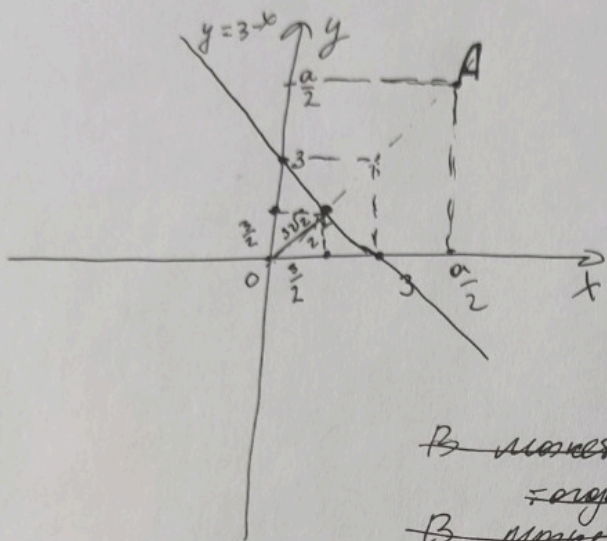 y = 3 - x
y
A
a/2
3
3/2
3√2/2
0
3/2
3
a/2
x
В может
В